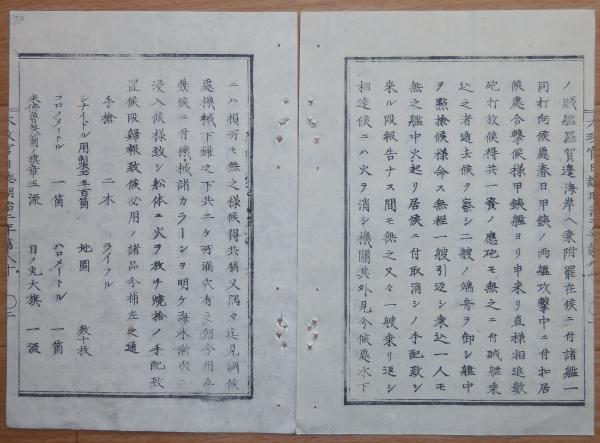 ノ賊艦器賀邊海岸ヘ乗附罷在候ニ付諸艦一
同打向候處春日甲鉄ノ両艦攻撃中ニ付扣居
候處合撃候様甲鉄艦ヨリ申来リ直様相進数
砲打放候得共一賽ノ應砲モ無之ニ付賊艦乗
込之者逃去候ヲ察シ二艘ノ端舟ヲ卸シ艦中
ヲ點撿候様命ス無程一艘引返シ乗込一人モ
無之艦中火起リ居候ニ付取消シノ手配致シ
来ル段報告ナス間モ無之又々一艘乗リ返シ
相達候ニハ火ヲ消シ機関其外見今候處水下
ニハ損所モ無之様候得共猶又隅々迄見調候
處機械下罐之下共ニケ所漏穴有之何分用立
兼候ニ付機械諸カラーンヲ明ケ海水漸次ニ
浸入候様致シ船体ニ火ヲ放チ焼捨ノ手配致
置候段帰報致候必用ノ諸品今補左之通
手槍 二本 ライフル
シナイドル用製薬五百箇 地圖 数十枚
コロノメートル 一箇 ハロメートル 一箇
米佛魯英蘭ノ旗章五流 日ノ丸大旗 一流